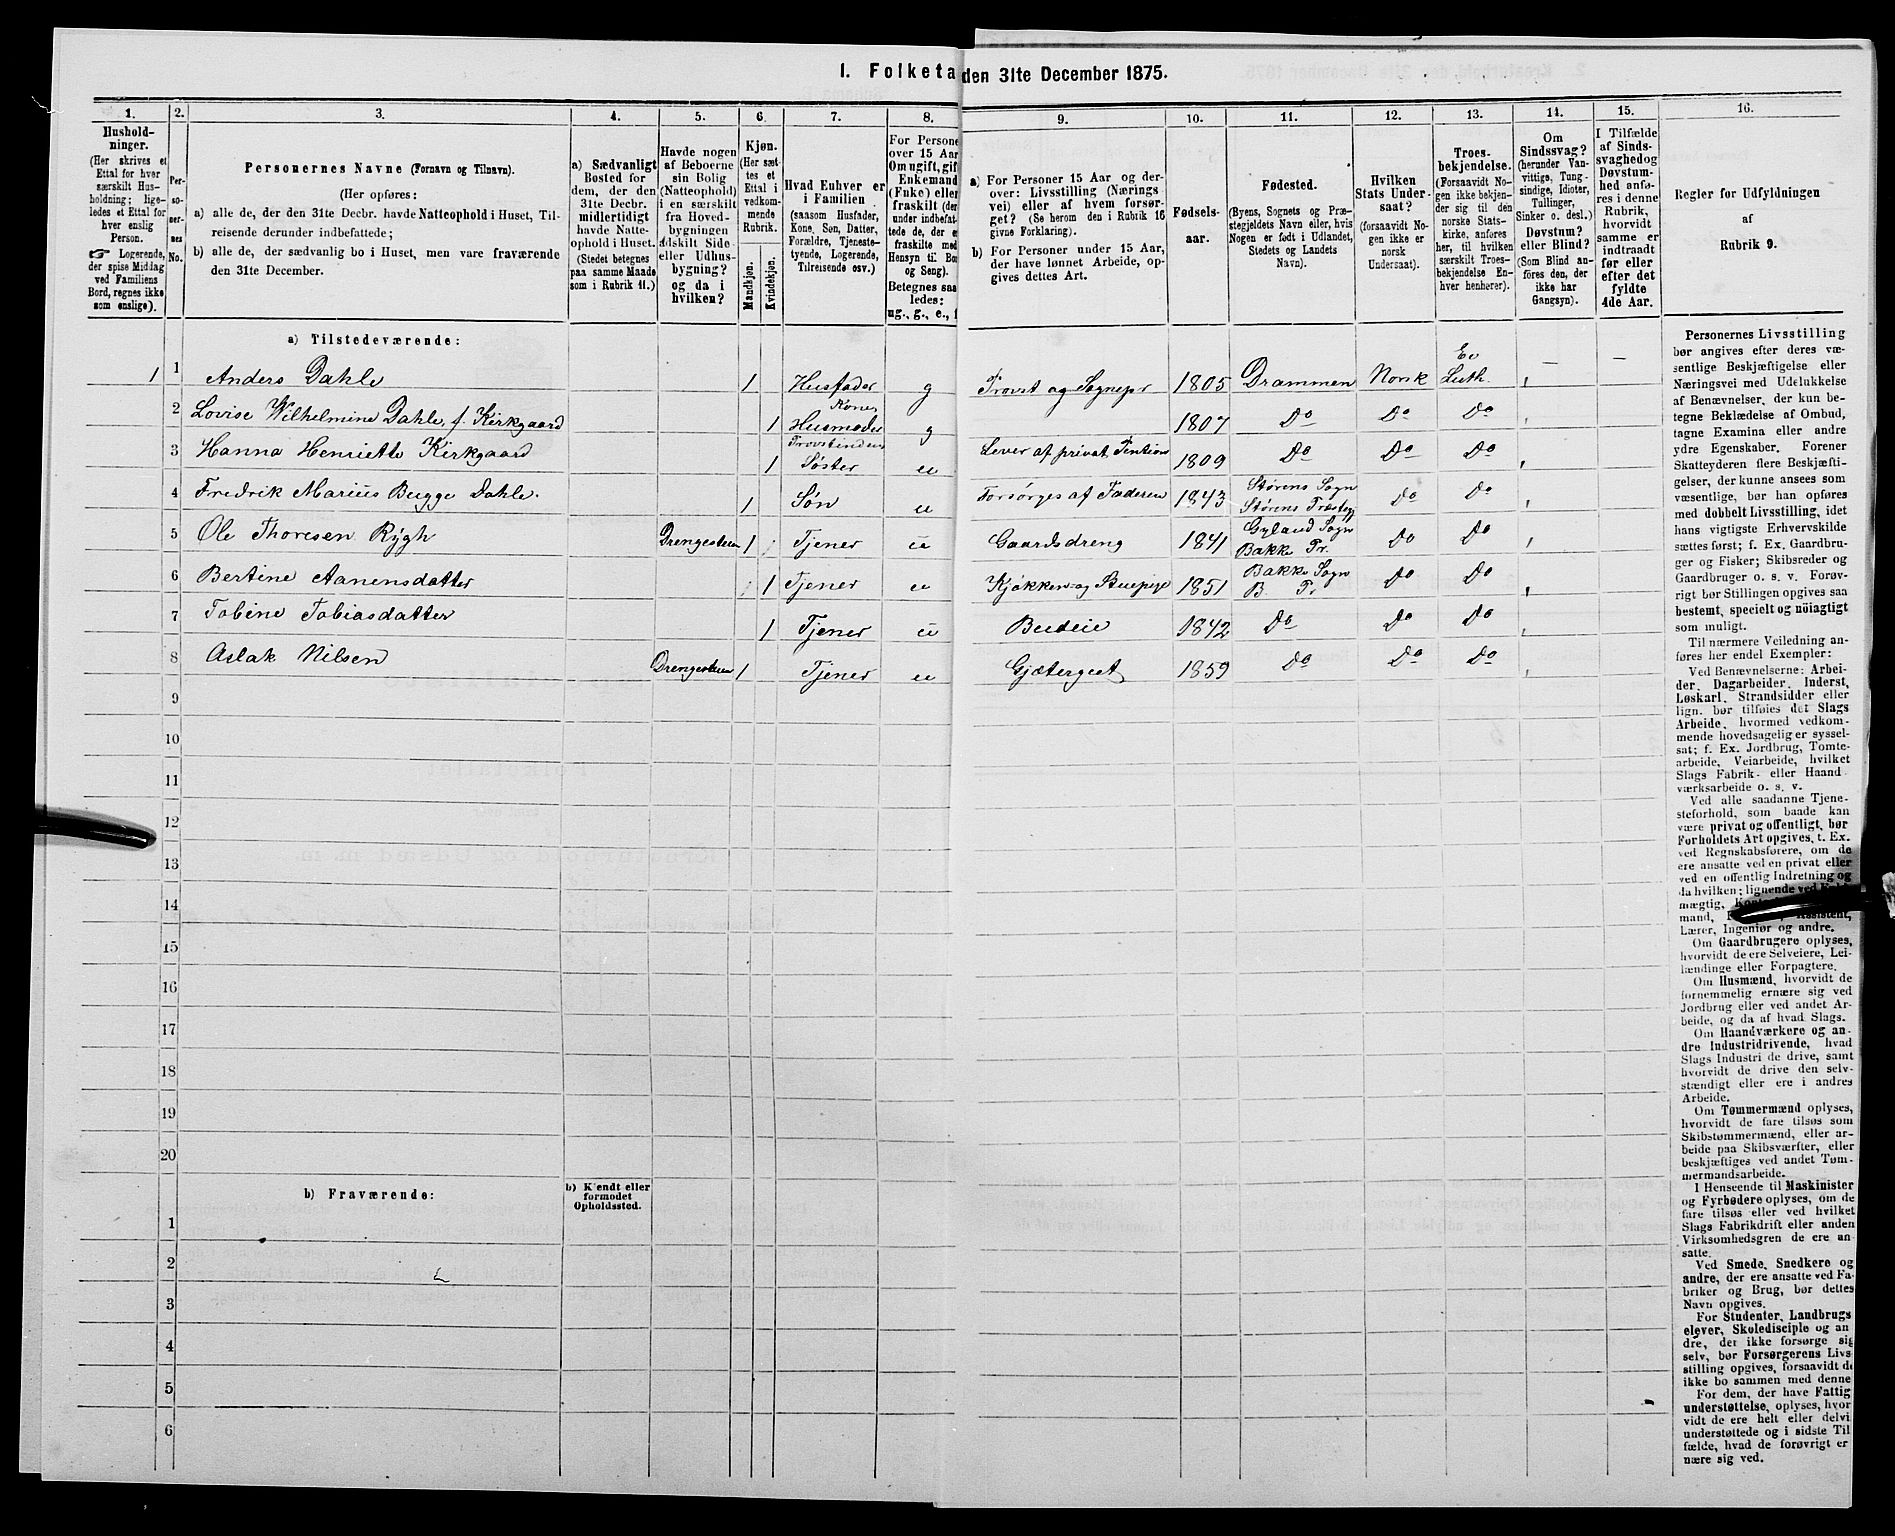 I. Folketa den 31te December 1875.
1. 2. 3. 4. 5. 6. 7. 8. 9. 10. 11. 12. 13. 14. 15. 16.
Hushold-
ninger.
(Her skrives et
Ettal for hver
særskilt Hus-
holdning; lige-
ledes et Ettal for
hver enslig
Person.
☞ Logerende,
der spise Middag
ved Familiens
Bord, regnes ikke
som enslige).
Per-
so-
ner-
nes
No.
Personernes Navne (Fornavn og Tilnavn).
(Her opføres:
a) alle de, der den 31te Decbr. havde Natteophold i Huset, Til-
reisende derunder indbefattede;
b) alle de, der sædvanlig bo i Huset, men vare fraværende
den 31te December.
a) Sædvanligt
Bosted for
dem, der den
31te Decbr.
midlertidigt
havde Natte-
ophold i Huset.
(Stedet betegnes
paa samme Maade
som i Rubrik 11.)
Havde nogen
af Beboerne
sin Bolig
(Natteophold)
i en særskilt
fra Hoved-
bygningen
adskilt Side-
eller Udhus-
bygning?
og da i
hvilken?
Kjøn.
(Her sæt-
tes et
Ettal i
vedkom-
mende
Rubrik.
Mandkjøn.
Kvindekjøn.
Hvad Enhver er
i Familien
(saasom Husfader,
Kone, Søn, Datter,
Forældre, Tjeneste-
tyende, Logerende,
Tilreisende osv.)
For Persone
over 15 Aar
Om ugift, gif
Enkemand
(Enke) eller
fraskilt (der
under indbefat-
tede de, der e
fraskilte med
Hensyn til Bo
og Seng).
Betegnes saa
ledes:
ug., g., e., f
a) For Personer 15 Aar og der-
over: Livsstilling (Nærings
vei) eller af hvem forsør-
get? (Se herom den i Rubrik 16
givne Forklaring).
b) For Personer under 15 Aar,
der have lønnet Arbeide, op-
gives dettes Art.
Fødsels-
aar.
Fødested.
(Byens, Sognets og Præ-
stegjeldets Navn eller, hvis
Nogen er født i Udlandet,
Stedets og Landets
Navn).
Hvilken
Stats Under-
saat?
(forsaavidt No-
gen ikke er
norsk
Undersaat).
Troes-
bekjendelse.
(Forsaavidt No-
gen ikke bekjen-
der sig til den
norske Stats-
kirke, anføres
her, til hvilken
særskilt Troes-
bekjendelse En-
hver henhører).
Om
Sindssvag?
(herunder Van-
vittige, Tung-
sindige, Idioter,
Tullinger,
Sinker o. desl.)
Døvstum?
eller Blind?
(Som Blind an-
føres den, der
ikke har
Gangsyn).
I Tilfælde
af Sinds-
svaghed og
Døvstum-
hed anfø-
res i denne
Rubrik,
hvorvidt
samme er
indtraadt
før eller
efter det
fyldte
4de Aar.
Regler for Udfyldningen
af
Rubrik 9.
a) Tilstedeværende:
1 1 Anders Dahle 1 Husfader g Provst og Sognepr 1805 Drammen Norsk Ev Luth. — —
2 Lovise Wilhelmine Dahle, f. Kirkgaard 1 Kone, Husmoder g 1807 Do Do Do
3 Hanna Henriette Kirkgaard 1 Provstindens Søster u Lever af privat Pention 1809 Do Do Do
4 Fredrik Marius Bugge Dahle. 1 Søn u Forsørges af Faderen 1843 Størens Sogn Størens Præsteg Do Do
5 Ole Thoresen Rygh Drengestuen 1 Tjener u Gaardsdreng 1841 Gyland Sogn Bakke Pr. Do Do
6 Bertine Aanensdatter 1 Tjener u Kjøkken og Stuepige 1851 Bakke Sogn B Pr Do Do
7 Tobine Tobiasdatter 1 Tjener u Budeie 1842 Do Do Do
8 Aslak Nilsen Drengestuen 1 Tjener u Gjætergut 1859 Do Do Do
9
10
11
12
13
14
15
16
17
18
19
20
b) Fraværende:
b) Kjendt eller
formodet
Opholdssted.
1
2
3
4
5
6
Personernes Livsstilling
bør angives efter deres væ-
sentlige Beskjæftigelse eller
Næringsvei med Udelukkelse
af Benævnelser, der kun be-
tegne Beklædelse af Ombud,
tagne Examina eller andre
ydre Egenskaber. Forener
Skatteyderen flere Beskjæfti-
gelser, der kunne ansees som
væsentlige, bør han opføres
med dobbelt Livsstilling, idet
hans vigtigste Erhvervskilde
sættes først; f. Ex. Gaardbru-
ger og Fisker; Skibsreder og
Gaardbruger o. s. v. Forøv-
rigt bør Stillingen opgives saa
bestemt, specielt og nöiagtigt
som muligt.
Til nærmere Veiledning an-
føres her endel Exempler:
Ved Benævnelserne: Arbei-
der, Dagarbeider, Inderst,
Løskarl, Strandsidder eller
lign. bør tilføies det Slags
Arbeide, hvormed vedkom-
mende hovedsagelig er syssel-
sat; f. Ex. Jordbrug, Tomte-
arbeide, Veiarbeide, hvilket
Slags Fabrik- eller Haand
værksarbeide o. s. v.
Ved alle saadanne Tjene-
steforhold, som baade kan
være privat og offentligt, bør
Forholdets Art opgives, t. Ex.
ved Regnskabsførere, om de
ere ansatte ved en privat eller
ved en offentlig Indretning og
da hvilken; lignende ved
mægtig,
mand, Assistent,
Lærer, Ingeniør og andre.
Om Gaardbrugere oplyses,
hvorvidt de ere Selveiere, Lei-
lændinge eller Forpagtere.
Om Husmænd, hvorvidt de
fornemmelig ernære sig ved
Jordbrug eller ved andet Ar-
beide, og da af hvad Slags.
Om Haandværkere og an-
dre Industridrivende, hvad
Slags Industri de drive, samt
hvorvidt de drive den selv-
stændigt eller ere i andres
Arbeide.
Om Tømmermænd oplyses,
hvorvidt de fare tilsøs som
Skibstømmermænd, eller ar-
beide paa Skibsværfter, eller
beskjæftiges ved andet Tøm-
mermandsarbeide.
I Henseende til Maskinister
og Fyrbødere oplyses, om de
fare tilsøs eller ved hvilket
Slags Fabrikdrift eller anden
Virksomhedsgren de ere an-
satte.
Ved Smede, Snedkere og
andre, der ere ansatte ved Fa-
briker og Brug, bør dettes
Navn opgives.
For Studenter, Landbrugs
elever, Skoledisciple og an
dre, der ikke forsørge sig
selv, bør Forsørgerens Livs-
stilling opgives, forsaavidt de
ikke bo sammen med denne
For dem, der have Fattig
understøttelse, oplyses, hvor
vidt de ere helt eller delvi
understøttede og i sidste Til
fælde, hvad de forøvrigt er
nære sig ved.